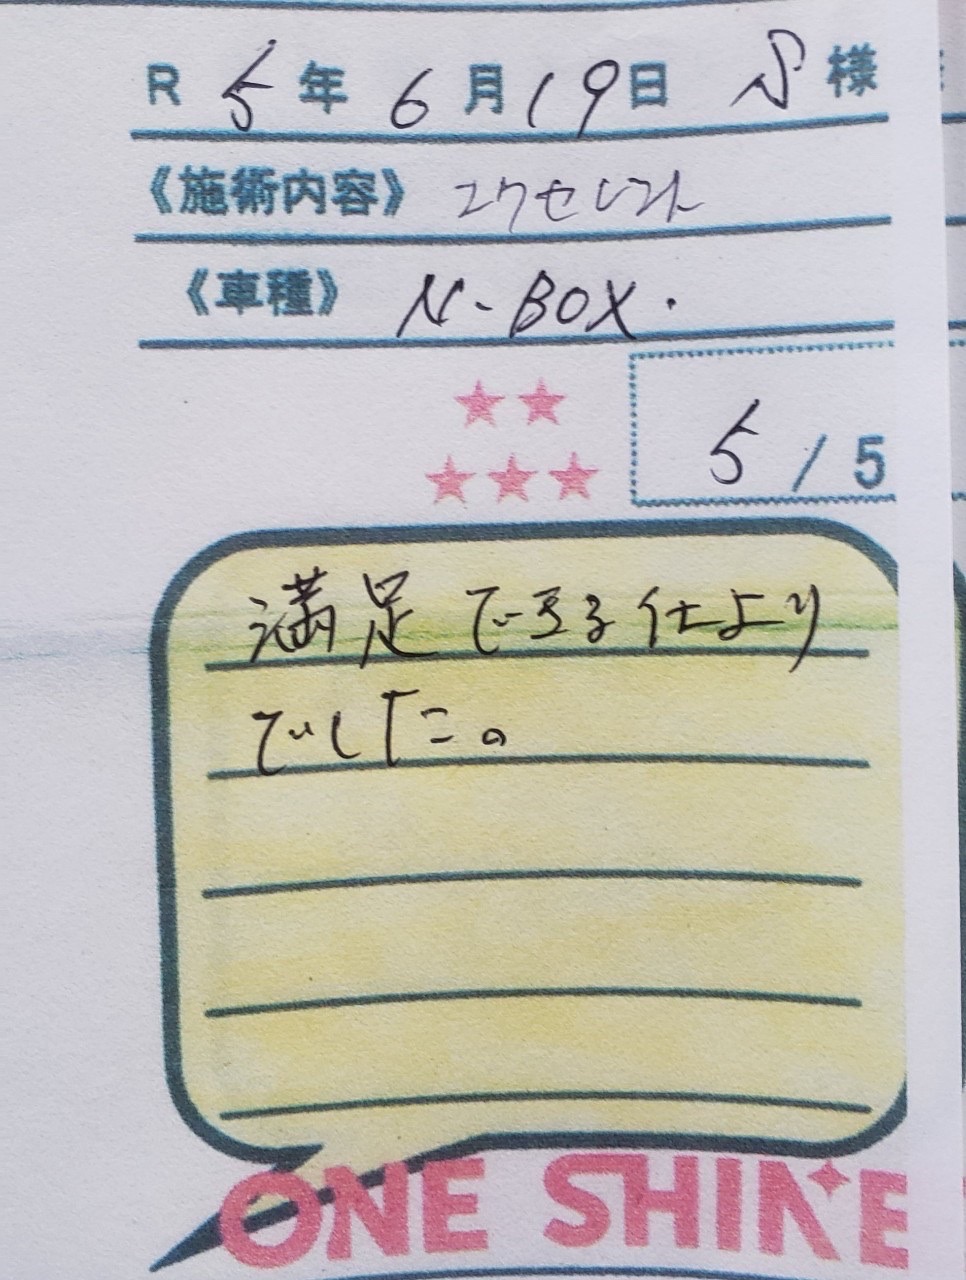 R 5年 6月19日 S様
《施術内容》
《車種》 N-BOX.
5/5
満足できる仕上り
でした。
ONE SHINE